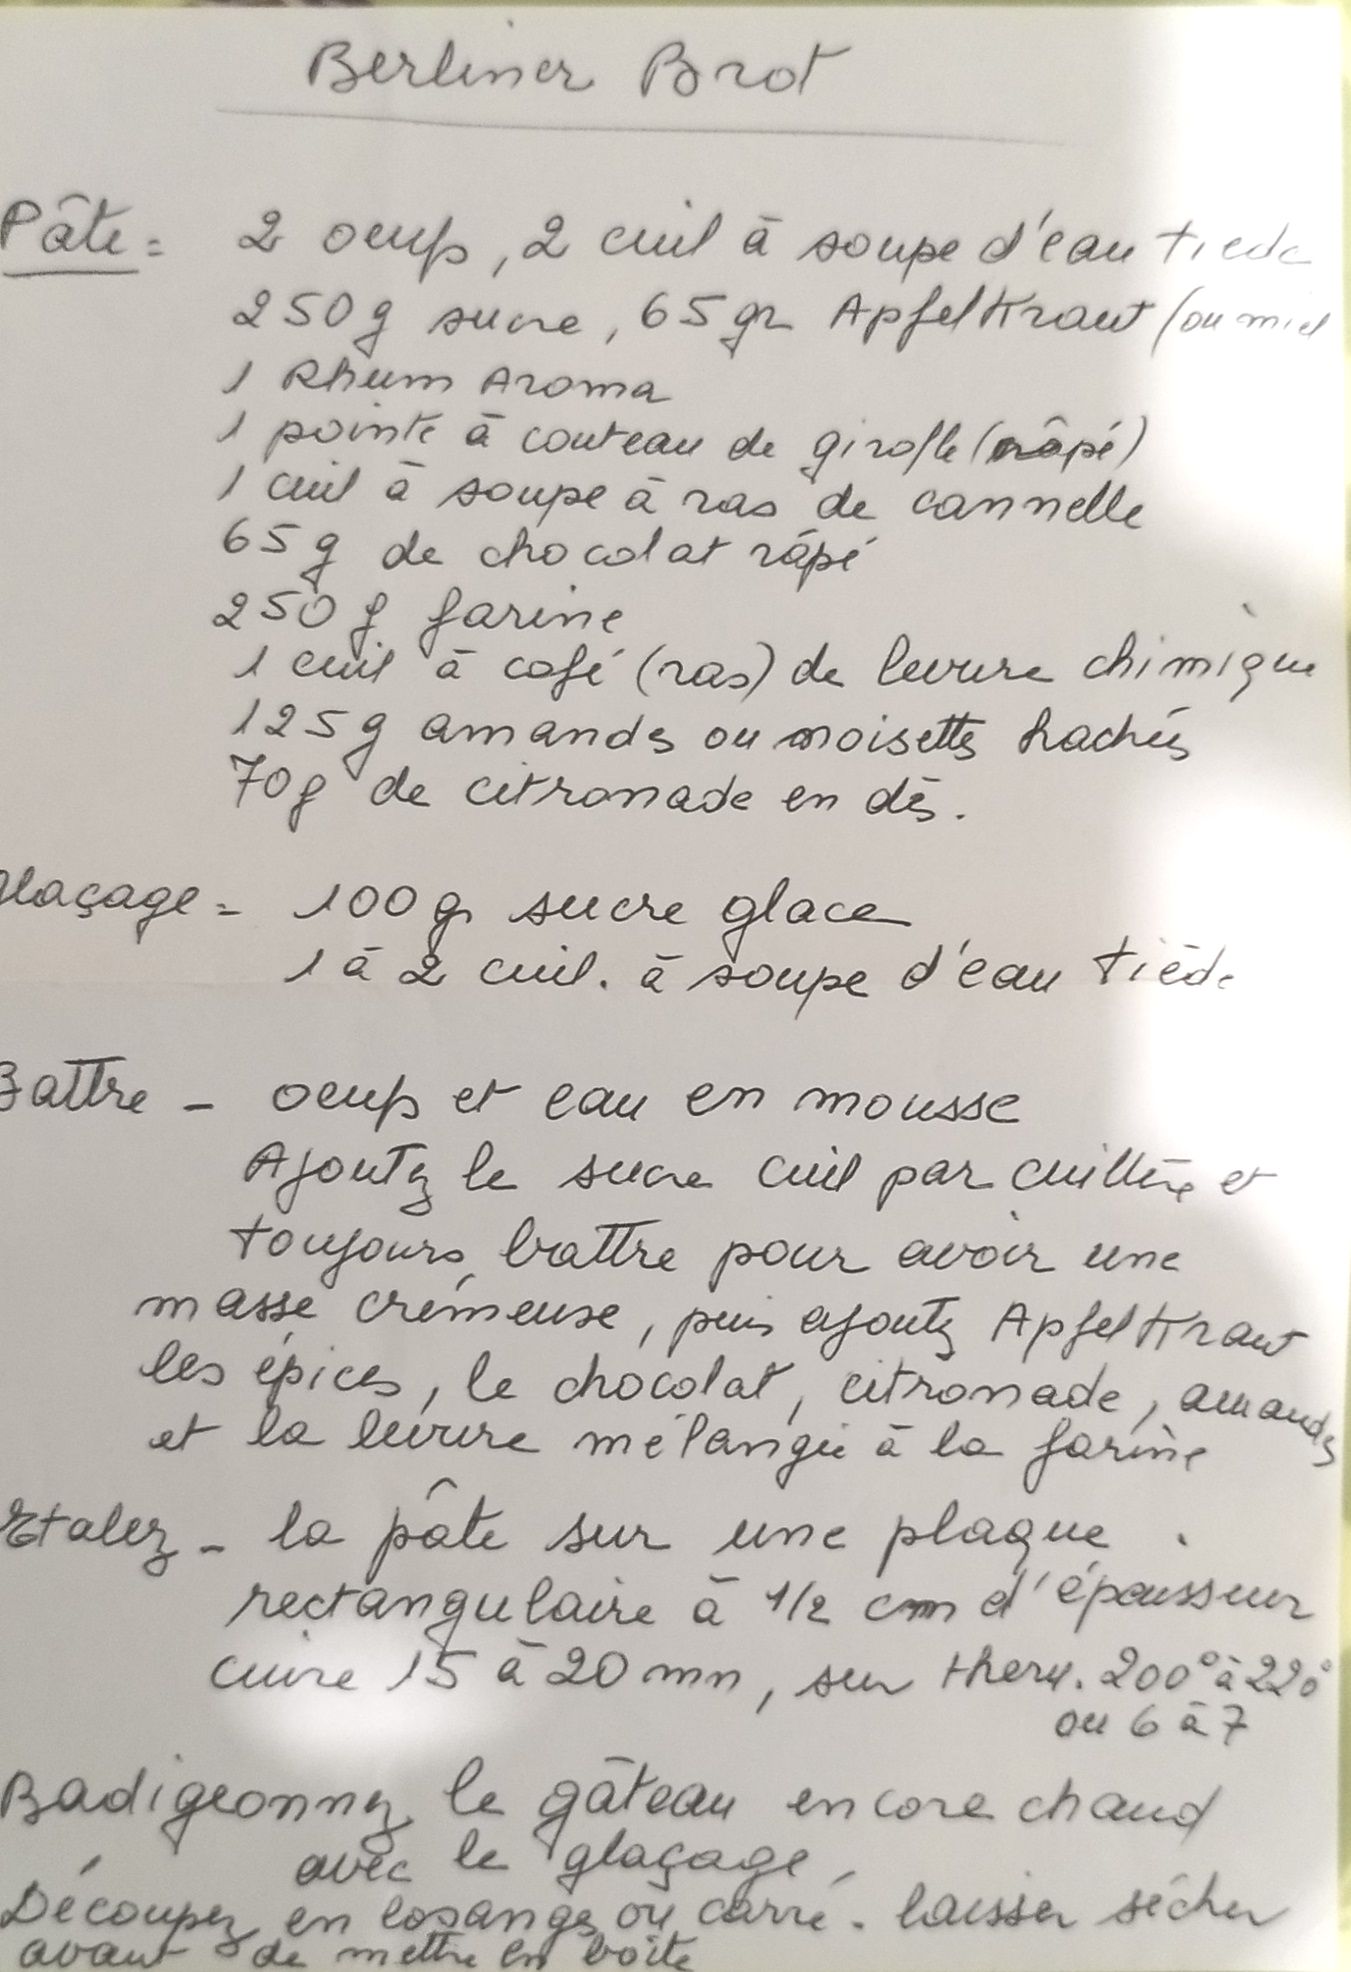 Berliner Brot
Pâte = 2 oeufs, 2 cuil à soupe d'eau tiede
250g sucre, 65gr ApfelKraut (ou miel
1 Rhum Aroma
1 pointe à couteau de girofle (râpé)
1 cuil à soupe à ras de cannelle
65g de chocolat râpé
250g farine
1 cuil à café (ras) de levure chimique
125g amandes ou noisettes hachés
70g de citronade en dés.
glaçage = 100g sucre glace
1 à 2 cuil. à soupe d'eau tiède
Battre - oeufs et eau en mousse
Ajoutez le sucre cuil par cuillère et
toujours battre pour avoir une
masse crémeuse, puis ajoutez ApfelKraut
les épices, le chocolat, citronade, amandes
et la levure mélangée à la farine
Etalez - la pâte sur une plaque
rectangulaire à 1/2 cm d'épaisseur
cuire 15 à 20 mn, sur ther. 200° à 220°
ou 6 à 7
Badigeonnez le gâteau encore chaud
avec le glaçage,
Découpez en losanges ou carré. laisser sécher
avant de mettre en boîte